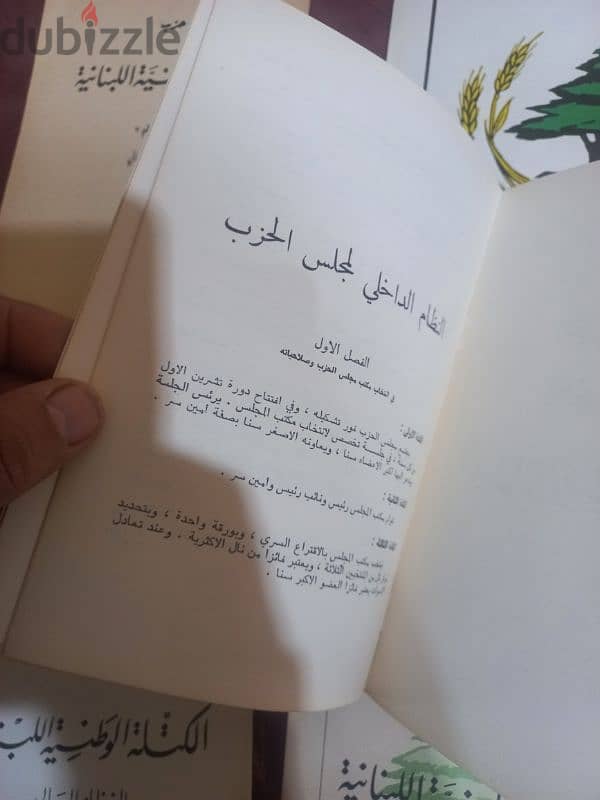 dubizzle
ـنية اللبنانية
النظام الداخلي لمجلس الحزب
الفصل الاول
في انتخاب مكتب مجلس الحزب وصلاحياته
المادة الاولى :
يجتمع مجلس الحزب فور تشكيله ، وفي افتتاح دورة تشرين الاول
من كل سنة ، في جلسة تخصص لانتخاب مكتب المجلس . يرئس الجلسة
اكبر الاعضاء سنا ، ويعاونه الاصغر سنا بصفة امين سر .
المادة الثانية :
قوام مكتب المجلس رئيس ونائب رئيس وامين سر .
المادة الثالثة :
ينتخب مكتب المجلس بالاقتراع السري ، وبورقة واحدة ، وبتحديد
مركز كل من المنتخبين الثلاثة ، ويعتبر فائزا من نال الاكثرية . وعند تعادل
الاصوات يعتبر فائزا العضو الاكبر سنا .
الكتلة الوطنية اللبنـ
ـنية اللبنانية